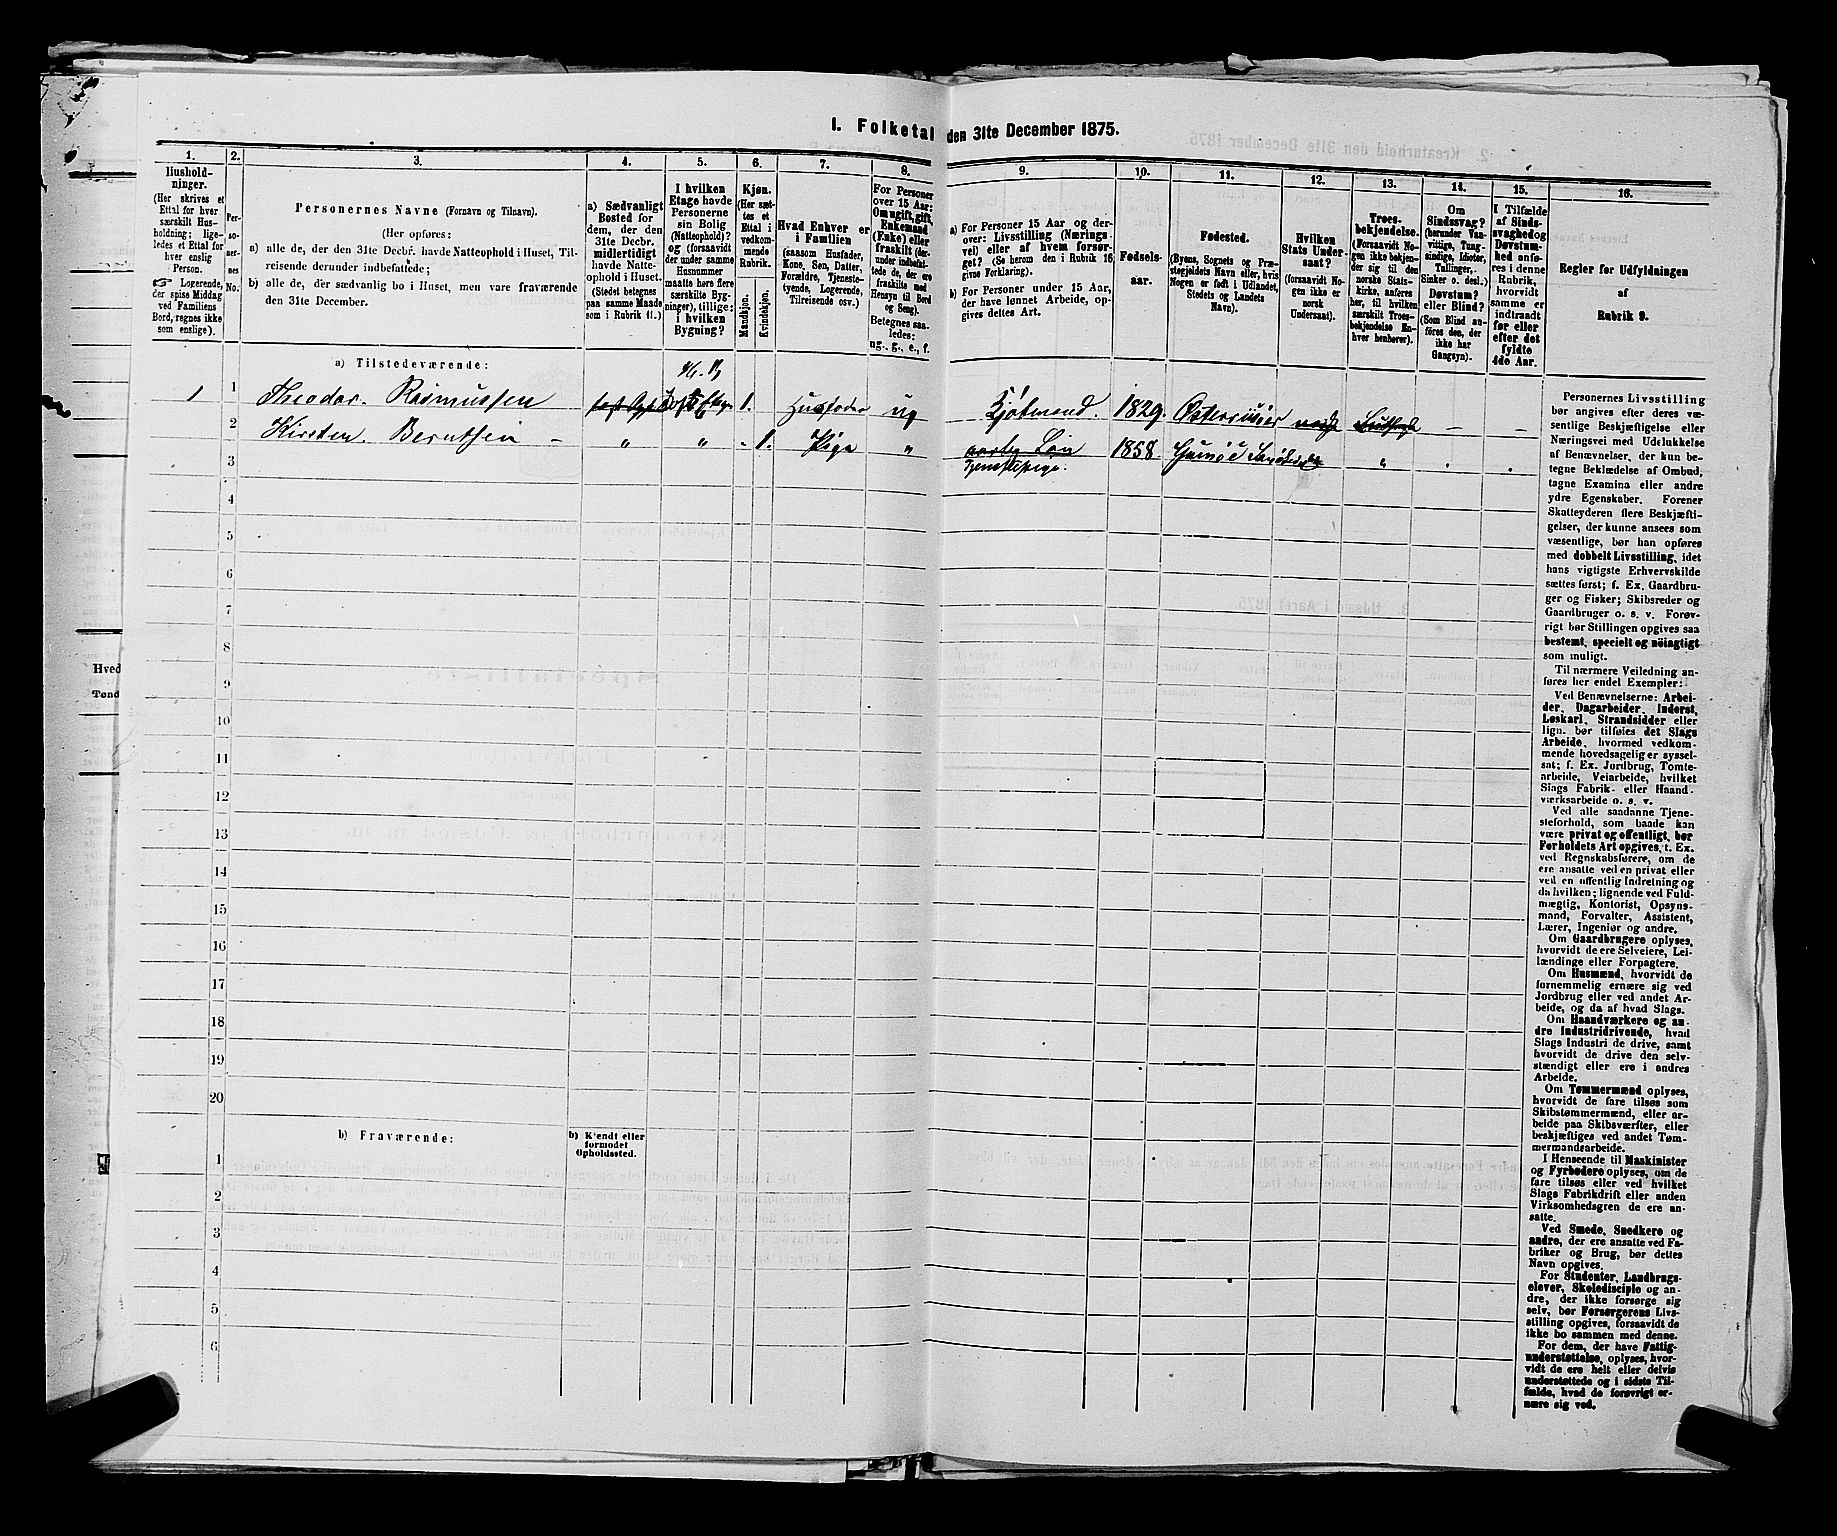 I. Folketal den 31te December 1875.
1. 2. 3. 4. 5. 6. 7. 8. 9. 10. 11. 12. 13. 14. 15. 16.
Husholdninger.
(Her skrives et
Ettal for hver
særskilt Husholdning; ligeledes et Ettal for
hver enslig
Person.
☞ Logerende,
der spise Middag
ved Familiens
Bord, regnes ikke
som enslige).
Personernes No.
Personernes Navne (Fornavn og Tilnavn).
(Her opføres:
a) alle de, der den 31te Decbr. havde Natteophold i Huset, Tilreisende derunder indbefattede;
b) alle de, der sædvanlig bo i Huset, men vare fraværende
den 31te December.
a) Sædvanligt
Bosted for
dem, der den
31te Decbr.
midlertidigt
havde Natteophold i Huset.
(Stedet betegnes
paa samme Maade
som i Rubrik 11.)
I hvilken
Etage havde
Personerne
sin Bolig
(Natteophold)?
og (forsaavidt
der under samme
Husnummer
maatte høre flere
særskilte Bygninger), tillige:
i hvilken
Bygning?
Kjøn.
(Her sættes et
Ettal i
vedkommende
Rubrik.
Mandkjøn.
Kvindekjøn.
Hvad Enhver er
i Familien
(saasom Husfader,
Kone, Søn, Datter,
Forældre, Tjenestetyende, Logerende,
Tilreisende osv.)
For Personer
over 15 Aar:
Om ugift, gift,
Enkemand
(Enke) eller
fraskilt (derunder indbefattede de, der ere
fraskilte med
Hensyn til Bord
og Seng).
Betegnes saaledes:
ug., g., e., f.
a) For Personer 15 Aar og derover: Livsstilling (Næringsvei) eller af hvem forsørget? (Se herom den i Rubrik 16
givne Forklaring).
b) For Personer under 15 Aar,
der have lønnet Arbeide, opgives dettes Art.
Fødselsaar.
Fødested.
(Byens, Sognets og Præstegjeldets Navn eller, hvis
Nogen er født i Udlandet,
Stedets og Landets
Navn).
Hvilken
Stats Undersaat?
(forsaavidt Nogen ikke er
norsk
Undersaat).
Troesbekjendelse.
(Forsaavidt Nogen ikke bekjender sig til den
norske Statskirke, anføres
her, til hvilken
særskilt Troesbekjendelse Enhver henhører).
Om
Sindssvag?
(herunder Vanvittige, Tungsindige, Idioter,
Tullinger,
Sinker o. desl.)
Døvstum?
eller Blind?
(Som Blind anføres den, der
ikke har
Gangsyn).
I Tilfælde
af Sindssvaghed og
Døvstumhed anføres i denne
Rubrik,
hvorvidt
samme er
indtraadt
før eller
efter det
fyldte
4de Aar.
Regler for Udfyldningen
af
Rubrik 9.
a) Tilstedeværende:
1 1 Theodor. Rasmussen 1. Husfader ug Kjøbmand. 1829. Østerrisøer norsk Luthersk — —
2 Kirsten. Berntsen – „ „ „ 1. Pige „ aarlig Løn 1858.
Tjenestepige.
3
4
5
6
7
8
9
10
11
12
13
14
15
16
17
18
19
20
b) Fraværende:
b) Kjendt eller
formodet
Opholdssted.
1
2
3
4
5
6
Personernes Livsstilling
bør angives efter deres væsentlige Beskjæftigelse eller
Næringsvei med Udelukkelse
af Benævnelser, der kun betegne Beklædelse af Ombud,
tagne Examina eller andre
ydre Egenskaber. Forener
Skatteyderen flere Beskjæftigelser, der kunne ansees som
væsentlige, bør han opføres
med dobbelt Livsstilling, idet
hans vigtigste Erhvervskilde
sættes først; f. Ex. Gaardbruger og Fisker; Skibsreder og
Gaardbruger o. s. v. Forøvrigt bør Stillingen opgives saa
bestemt, specielt og nöiagtigt
som muligt.
Til nærmere Veiledning anføres her endel Exempler:
Ved Benævnelserne: Arbeider, Dagarbeider, Inderst,
Løskarl, Strandsidder eller
lign. bør tilføies det Slags
Arbeide, hvormed vedkommende hovedsagelig er sysselsat; f. Ex. Jordbrug, Tomtearbeide, Veiarbeide, hvilket
Slags Fabrik- eller Haandværksarbeide o. s. v.
Ved alle saadanne Tjenesteforhold, som baade kan
være privat og offentligt, bør
Forholdets Art opgives, t. Ex.
ved Regnskabsførere, om de
ere ansatte ved en privat eller
ved en offentlig Indretning og
da hvilken; lignende ved Fuldmægtig, Kontorist, Opsynsmand, Forvalter, Assistent,
Lærer, Ingeniør og andre.
Om Gaardbrugere oplyses,
hvorvidt de ere Selveiere, Leilændinge eller Forpagtere.
Om Husmænd, hvorvidt de
fornemmelig ernære sig ved
Jordbrug eller ved andet Arbeide, og da af hvad Slags.
Om Haandværkere og andre Industridrivende, hvad
Slags Industri de drive, samt
hvorvidt de drive den selvstændigt eller ere i andres
Arbeide.
Om Tømmermænd oplyses,
hvorvidt de fare tilsøs som
Skibstømmermænd, eller arbeide paa Skibsværfter, eller
beskjæftiges ved andet Tømmermandarbeide.
I Henseende til Maskinister
og Fyrbødere oplyses, om de
fare tilsøs eller ved hvilket
Slags Fabrikdrift eller anden
Virksomhedsgren de ere ansatte.
Ved Smede, Snedkere og
andre, der ere ansatte ved Fabriker og Brug, bør dettes
Navn opgives.
For Studenter, Landbrugselever, Skoledisciple og andre, der ikke forsørge sig
selv, bør Forsørgerens Livsstilling opgives, forsaavidt de
ikke bo sammen med denne.
For dem, der have Fattigunderstøttelse, oplyses, hvorvidt de ere helt eller delvis
understøttede og i sidste Tilfælde, hvad de forøvrigt ernære sig ved.
Hved
Tønd